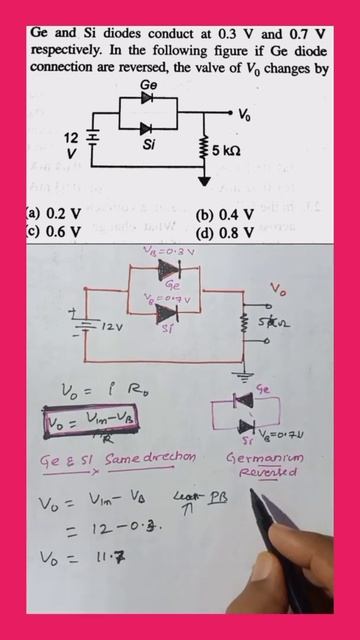 Ge and Si diodes conduct at 0.3 V and 0.7 V
respectively. In the following figure if Ge diode
connection are reversed, the valve of V₀ changes by
Ge
V₀
12
V
Si
5 kΩ
(a) 0.2 V (b) 0.4 V
(c) 0.6 V (d) 0.8 V
V_B=0.3V
Ge
V_B=0.7V
Si
+
-
12V
V₀
V₀ = i R₀
V₀ = Vin-V_B
R
Ge
Si V_B=0.7V
Ge & SI Same direction
Germanium
Reversed
V₀ = Vin - V_B PB
= 12-0.3.
V₀ = 11.7